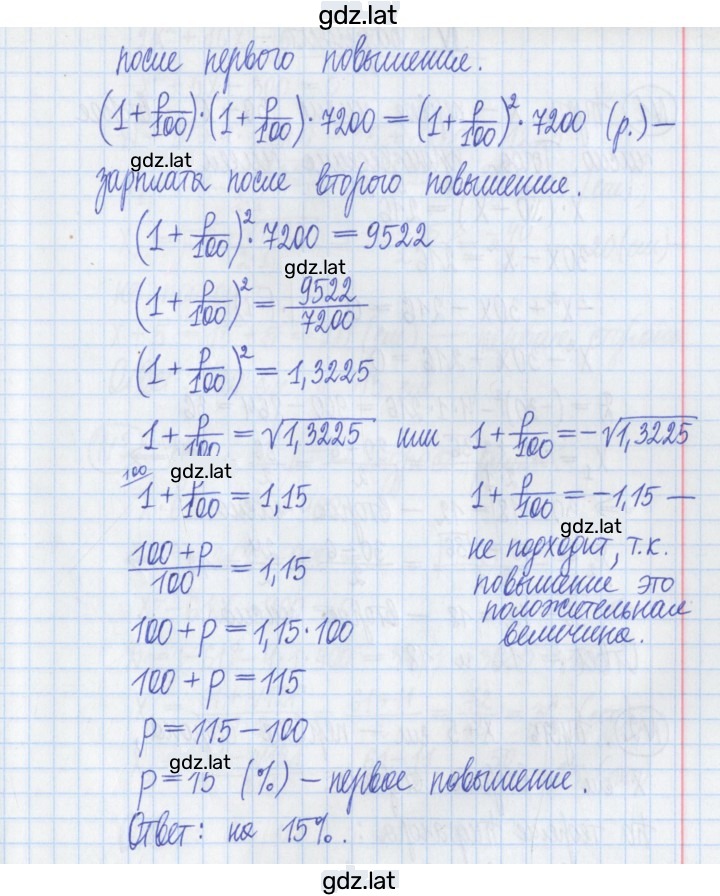 gdz.lat
после первого повышения.
(1 + p/100) · (1 + p/100) · 7200 = (1 + p/100)² · 7200 (р.) —
gdz.lat
зарплата после второго повышения.
(1 + p/100)² · 7200 = 9522
gdz.lat
(1 + p/100)² = 9522/7200
(1 + p/100)² = 1,3225
1 + p/100 = √1,3225 или 1 + p/100 = -√1,3225
gdz.lat
100/ 1 + p/100 = 1,15 1 + p/100 = -1,15 —
gdz.lat
не подходит, т.к.
повышение это
положительная
величина.
(100 + p)/100 = 1,15
100 + p = 1,15 · 100
100 + p = 115
p = 115 - 100
gdz.lat
p = 15 (%) - первое повышение.
Ответ: на 15%.
gdz.lat